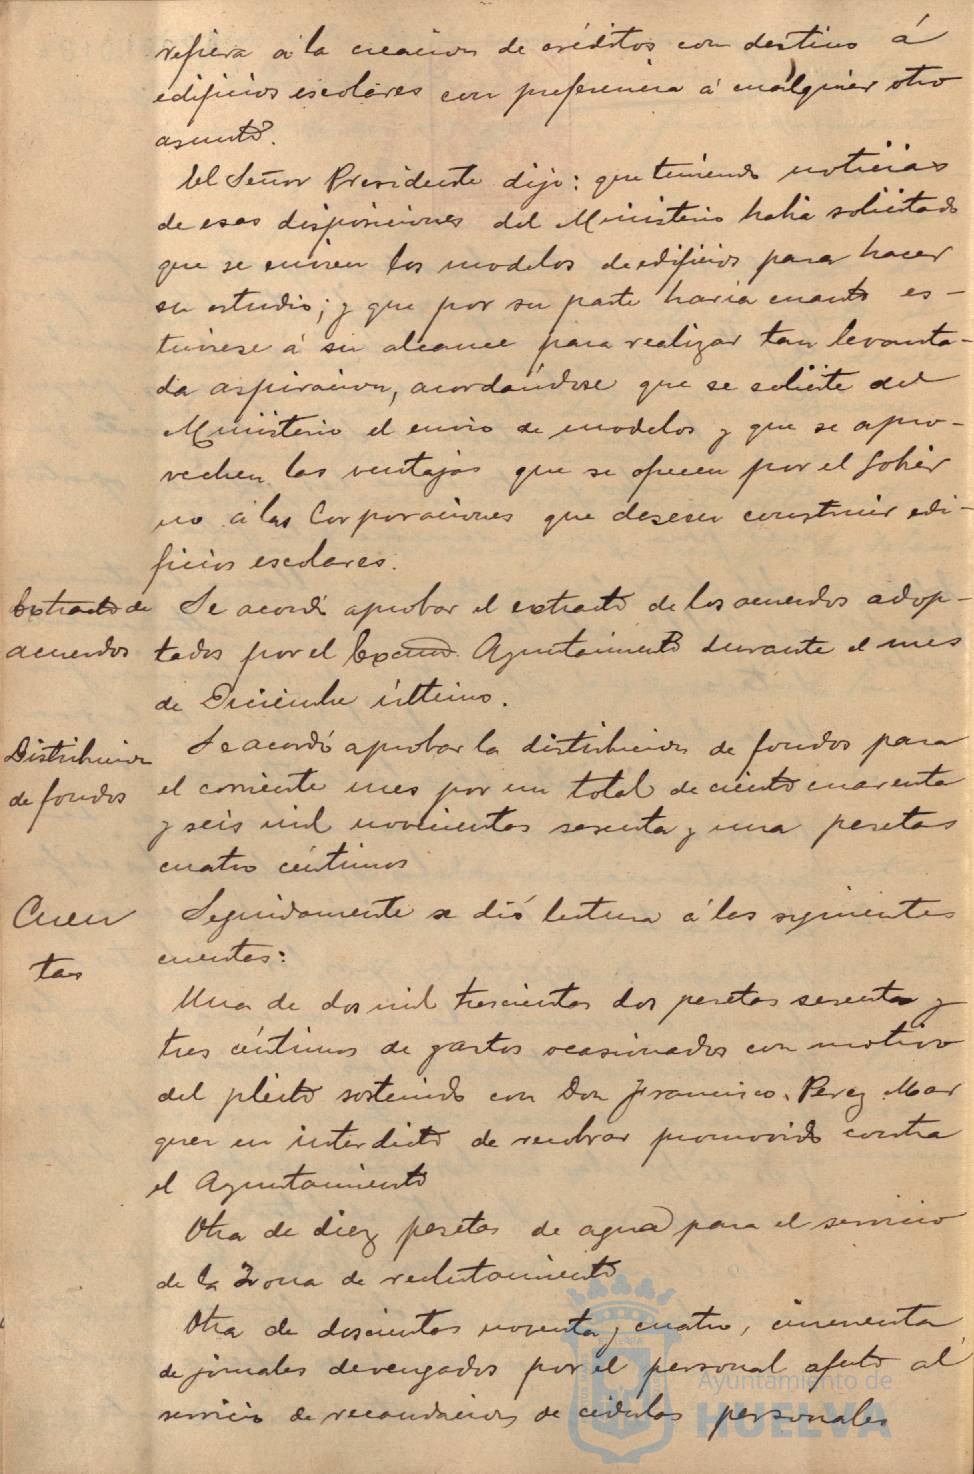 refiera á la creacion de créditos con destino á
edificios escolares con preferencia á cualquier otro
asunto.
El Señor Presidente dijo: que teniendo noticias
de esas disposiciones del Ministerio habia solicitado
que se envien los modelos de edificios para hacer
su estudio; y que por su parte haria cuanto es-
tuviese á su alcance para realizar tan levanta-
da aspiracion, acordándose que se solicite del
Ministerio el envio de modelos y que se apro-
vechen las ventajas que se ofrecen por el Gobier
no á las Corporaciones que deseen construir edi-
ficios escolares.
Extracto de
acuerdos
Se acordó aprobar el extracto de los acuerdos adop-
tados por el Excmo. Ayuntamiento durante el mes
de Diciembre último.
Distribucion
de fondos
Se acordó aprobar la distribucion de fondos para
el corriente mes por un total de ciento cuarenta
y seis mil novecientas sesenta y una pesetas
cuatro céntimos
Cuen
tas
Seguidamente se dió lectura á las siguientes
cuentas:
Una de dos mil trescientas dos pesetas sesenta y
tres céntimos de gastos ocasionados con motivo
del pleito sostenido con Don Francisco Perez Mar
quez en interdicto de recobrar promovido contra
el Ayuntamiento
Otra de diez pesetas de agua para el servicio
de la Zona de reclutamiento
Otra de doscientas noventa y cuatro, cincuenta
de jornales devengados por el personal afecto al
servicio de recaudacion de cédulas personales
Ayuntamiento de
HUELVA